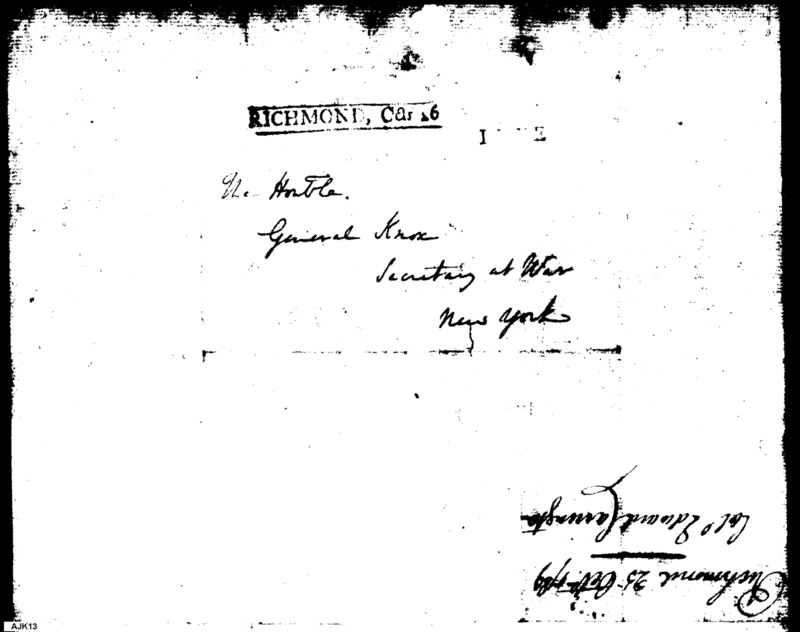 RICHMOND, Oct 26
The Honble.
General Knox
Secretary at War
New York
Richmond 25 Octr 1789
Colo Edward Carrington
AJK13